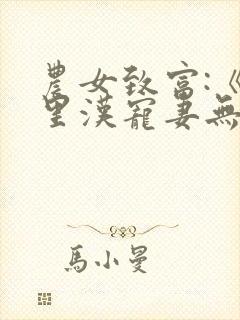 農女致富:《
里漢寵妻無
馬小曼